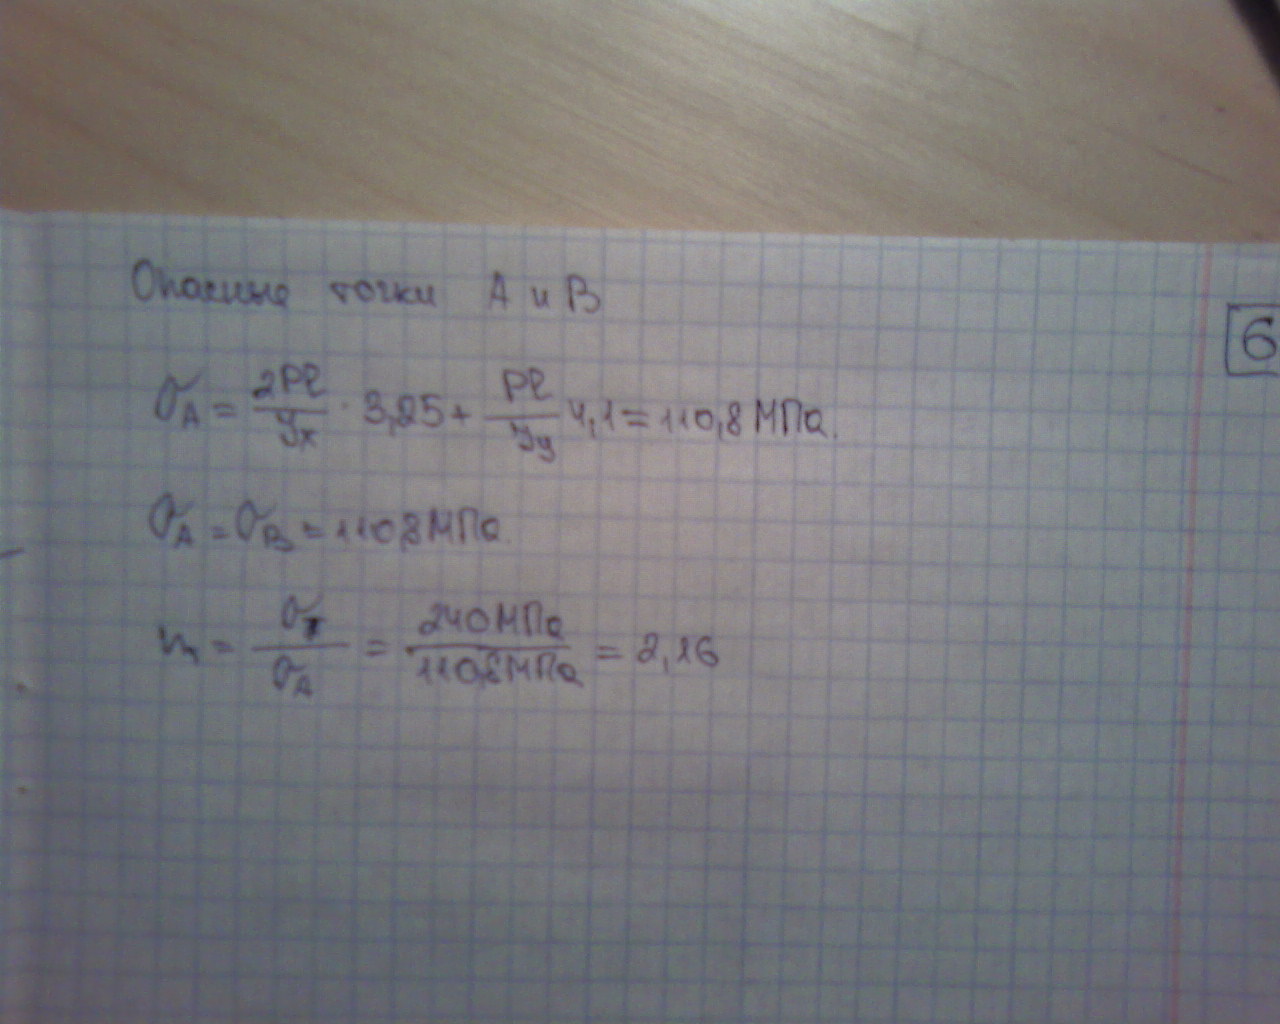 Опасные точки А и В
6
σA = 2Pl/Jx · 3,25 + Pl/Jy 4,1 = 110,8 МПа.
σA = σB = 110,8 МПа.
n = σт/σA = 240 МПа/110,8 МПа = 2,16